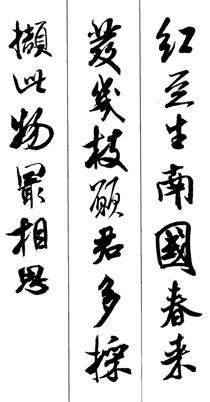 红豆生南國春来
發幾枝願君多採
擷此物最相思